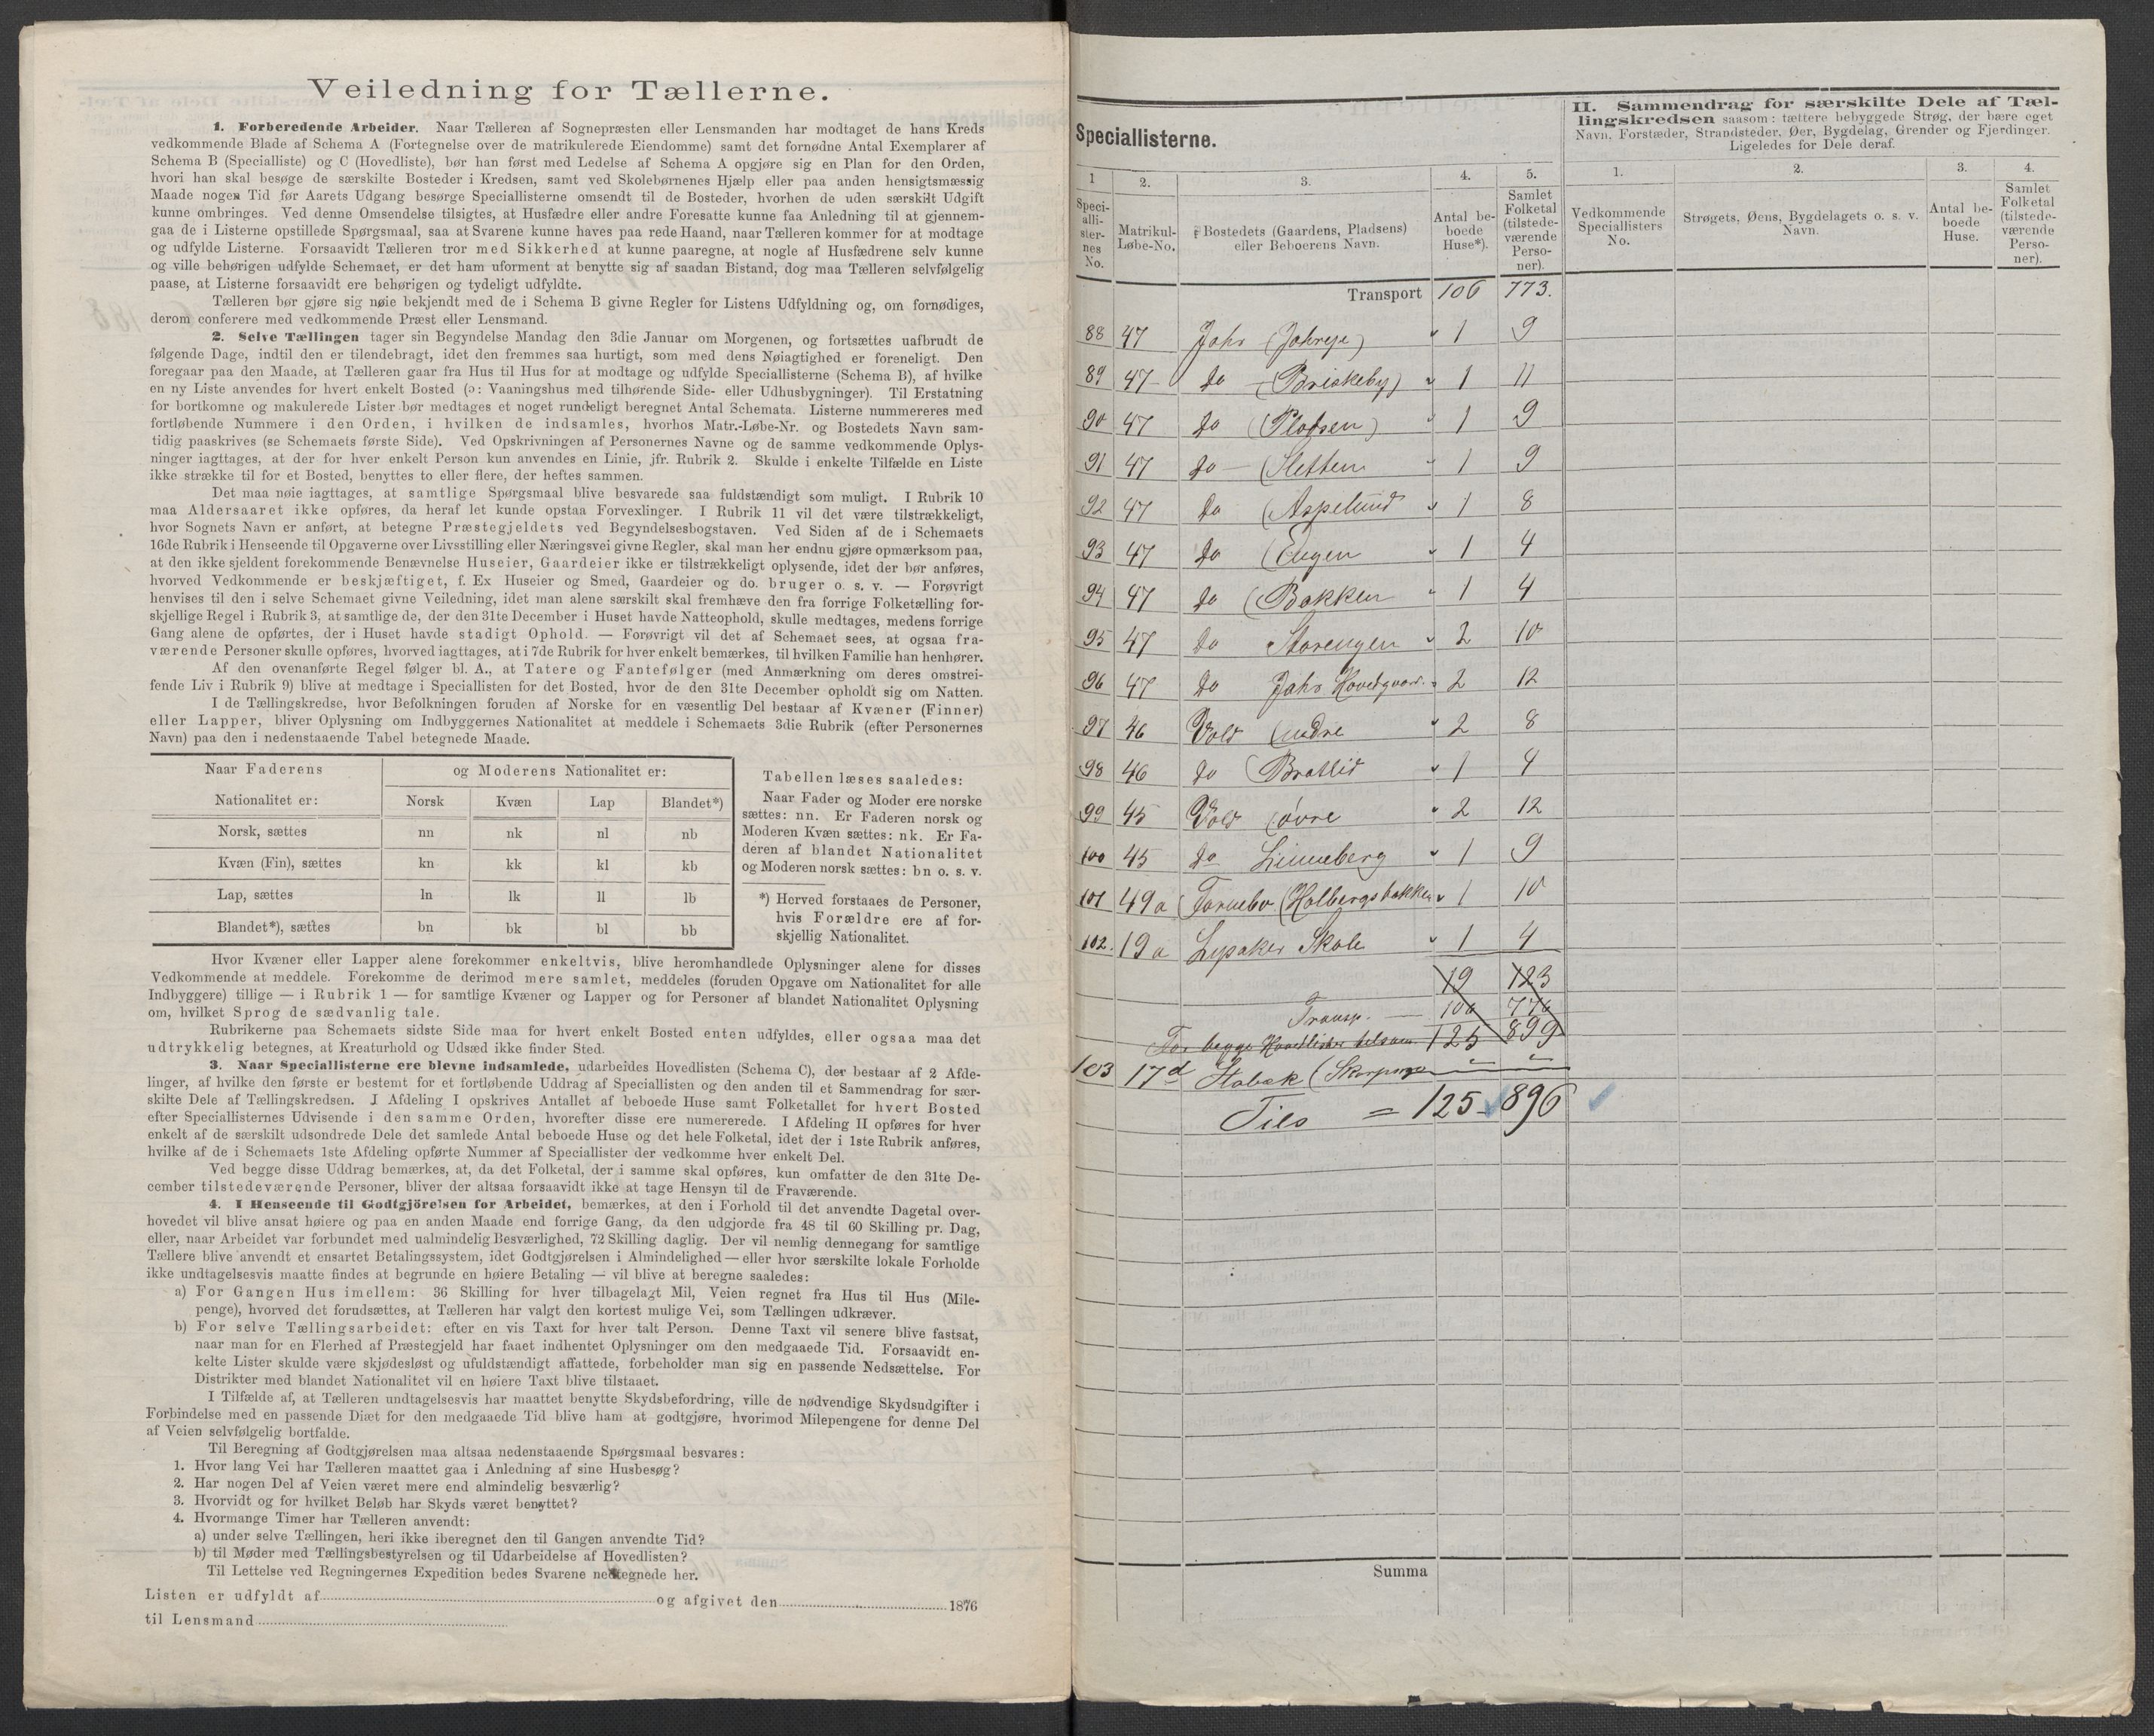 Veiledning for Tællerne.
1. Forberedende Arbeider. Naar Tælleren af Sognepræsten eller Lensmanden har modtaget de hans Kreds
vedkommende Blade af Schema A (Fortegnelse over de matrikulerede Eiendomme) samt det fornødne Antal Exemplarer af
Schema B (Specialliste) og C (Hovedliste), bør han først med Ledelse af Schema A opgjøre sig en Plan for den Orden,
hvori han skal besøge de særskilte Bosteder i Kredsen, samt ved Skolebørnenes Hjælp eller paa anden hensigtsmæssig
Maade nogen Tid før Aarets Udgang besørge Speciallisterne omsendt til de Bosteder, hvorhen de uden særskilt Udgift
kunne ombringes. Ved denne Omsendelse tilsigtes, at Husfædre eller andre Foresatte kunne faa Anledning til at gjennem-
gaa de i Listerne opstillede Spørgsmaal, saa at Svarene kunne haves paa rede Haand, naar Tælleren kommer for at modtage
og udfylde Listerne. Forsaavidt Tælleren tror med Sikkerhed at kunne paaregne, at nogle af Husfædrene selv kunne
og ville behørigen udfylde Schemaet, er det ham uforment at benytte sig af saadan Bistand, dog maa Tælleren selvfølgelig
paase, at Listerne forsaavidt ere behørigen og tydeligt udfyldte.
Tælleren bør gjøre sig nøie bekjendt med de i Schema B givne Regler for Listens Udfyldning og, om fornødiges,
derom conferere med vedkommende Præst eller Lensmand.
2. Selve Tællingen tager sin Begyndelse Mandag den 3die Januar om Morgenen, og fortsættes uafbrudt de
følgende Dage, indtil den er tilendebragt, idet den fremmes saa hurtigt, som med dens Nøiagtighed er foreneligt. Den
foregaar paa den Maade, at Tælleren gaar fra Hus til Hus for at modtage og udfylde Speciallisterne (Schema B), af hvilke
en ny Liste anvendes for hvert enkelt Bosted (ɔ: Vaaningshus med tilhørende Side- eller Udhusbygninger). Til Erstatning
for bortkomne og makulerede Lister bør medtages et noget rundeligt beregnet Antal Schemata. Listerne nummereres med
fortløbende Nummere i den Orden, i hvilken de indsamles, hvorhos Matr.-Løbe-Nr. og Bostedets Navn sam-
tidig paaskrives (se Schemaets første Side). Ved Opskrivningen af Personernes Navne og de samme vedkommende Oplys-
ninger iagttages, at der for hver enkelt Person kun anvendes en Linie, jfr. Rubrik 2. Skulde i enkelte Tilfælde en Liste
ikke strække til for et Bosted, benyttes to eller flere, der heftes sammen.
Det maa nøie iagttages, at samtlige Spørgsmaal blive besvarede saa fuldstændigt som muligt. I Rubrik 10
maa Aldersaaret ikke opføres, da heraf let kunde opstaa Forvexlinger. I Rubrik 11 vil det være tilstrækkeligt,
hvor Sognets Navn er anført, at betegne Præstegjeldets ved Begyndelsesbogstaven. Ved Siden af de i Schemaets
16de Rubrik i Henseende til Opgaverne over Livsstilling eller Næringsvei givne Regler, skal man her endnu gjøre opmærksom paa,
at den ikke sjeldent forekommende Benævnelse Huseier, Gaardeier ikke er tilstrækkeligt oplysende, idet der bør anføres,
hvorved Vedkommende er beskjæftiget, f. Ex Huseier og Smed, Gaardeier og do. bruger o. s. v. — Forøvrigt
henvises til den i selve Schemaet givne Veiledning, idet man alene særskilt skal fremhæve den fra forrige Folketælling for-
skjellige Regel i Rubrik 3, at samtlige de, der den 31te December i Huset havde Natteophold, skulle medtages, medens forrige
Gang alene de opførtes, der i Huset havde stadigt Ophold. — Forøvrigt vil det af Schemaet sees, at ogsaa fra-
værende Personer skulle opføres, hvorved iagttages, at i 7de Rubrik for hver enkelt bemærkes, til hvilken Familie han henhører.
Af den ovenanførte Regel følger bl. A., at Tatere og Fantefølger (med Anmærkning om deres omstrei-
fende Liv i Rubrik 9) blive at medtage i Speciallisten for det Bosted, hvor de den 31te December opholdt sig om Natten.
I de Tællingskredse, hvor Befolkningen foruden af Norske for en væsentlig Del bestaar af Kvæner (Finner)
eller Lapper, bliver Oplysning om Indbyggernes Nationalitet at meddele i Schemaets 3die Rubrik (efter Personernes
Navn) paa den i nedenstaaende Tabel betegnede Maade.
Naar Faderens og Moderens Nationalitet er:
Nationalitet er: Norsk Kvæn Lap Blandet*)
Norsk, sættes nn nk nl nb
Kvæn (Fin), sættes kn kk kl kb
Lap, sættes ln lk ll lb
Blandet*), sættes bn bk bl bb
Tabellen læses saaledes:
Naar Fader og Moder ere norske
sættes: nn. Er Faderen norsk og
Moderen Kvæn sættes: nk. Er Fa-
deren af blandet Nationalitet
og Moderen norsk sættes: bn o. s. v.
*) Herved forstaaes de Personer,
hvis Forældre ere af for-
skjellig Nationalitet.
Hvor Kvæner eller Lapper alene forekommer enkeltvis, blive heromhandlede Oplysninger alene for disses
Vedkommende at meddele. Forekomme de derimod mere samlet, meddeles (foruden Opgave om Nationalitet for alle
Indbyggere) tillige — i Rubrik 1 — for samtlige Kvæner og Lapper og for Personer af blandet Nationalitet Oplysning
om, hvilket Sprog de sædvanlig tale.
Rubrikerne paa Schemaets sidste Side maa for hvert enkelt Bosted enten udfyldes, eller ogsaa maa det
udtrykkelig betegnes, at Kreaturhold og Udsæd ikke finder Sted.
3. Naar Speciallisterne ere blevne indsamlede, udarbeides Hovedlisten (Schema C), der bestaar af 2 Afde-
linger, af hvilke den første er bestemt for et fortløbende Uddrag af Speciallisten og den anden til et Sammendrag for sær-
skilte Dele af Tællingskredsen. J Afdeling I opskrives Antallet af beboede Huse samt Folketallet for hvert Bosted
efter Speciallisternes Udvisende i den samme Orden, hvorefter disse ere numererede. I Afdeling II opføres for hver
enkelt af de særskilt udsondrede Dele det samlede Antal beboede Huse og det hele Folketal, idet der i 1ste Rubrik anføres,
hvilke af de i Schemaets 1ste Afdeling opførte Nummer af Speciallister der vedkomme hver enkelt Del.
Ved begge disse Uddrag bemærkes, at, da det Folketal, der i samme skal opføres, kun omfatter de den 31te De-
cember tilstedeværende Personer, bliver der altsaa forsaavidt ikke at tage Hensyn til de Fraværende.
4. I Henseende til Godtgjörelsen for Arbeidet, bemærkes, at den i Forhold til det anvendte Dagetal over-
hovedet vil blive ansat høiere og paa en anden Maade end forrige Gang, da den udgjorde fra 48 til 60 Skilling pr. Dag,
eller, naar Arbeidet var forbundet med ualmindelig Besværlighed, 72 Skilling daglig. Der vil nemlig dennegang for samtlige
Tællere blive anvendt et ensartet Betalingssystem, idet Godtgjørelsen i Almindelighed — eller hvor særskilte lokale Forholde
ikke undtagelsesvis maatte findes at begrunde en høiere Betaling — vil blive at beregne saaledes:
a) For Gangen Hus imellem: 36 Skilling for hver tilbagelagt Mil, Veien regnet fra Hus til Hus (Mile-
penge), hvorved det forudsættes, at Tælleren har valgt den kortest mulige Vei, som Tællingen udkræver.
b) For selve Tællingsarbeidet: efter en vis Taxt for hver talt Person. Denne Taxt vil senere blive fastsat,
naar man for en Flerhed af Præstegjeld har faaet indhentet Oplysninger om den medgaaede Tid. Forsaavidt en-
kelte Lister skulde være skjødesløst og ufuldstændigt affattede, forbeholder man sig en passende Nedsættelse. For
Distrikter med blandet Nationalitet vil en høiere Taxt blive tilstaaet.
I Tilfælde af, at Tælleren undtagelsesvis har maattet benytte Skydsbefordring, ville de nødvendige Skydsudgifter i
Forbindelse med en passende Diæt for den medgaaede Tid blive ham at godtgjøre, hvorimod Milepengene for denne Del
af Veien selvfølgelig bortfalde.
Til Beregning af Godtgjørelsen maa altsaa nedenstaaende Spørgsmaal besvares:
1. Hvor lang Vei har Tælleren maattet gaa i Anledning af sine Husbesøg?
2. Har nogen Del af Veien været mere end almindelig besværlig?
3. Hvorvidt og for hvilket Beløb har Skyds været benyttet?
4. Hvormange Timer har Tælleren anvendt:
a) under selve Tællingen, heri ikke iberegnet den til Gangen anvendte Tid?
b) til Møder med Tællingsbestyrelsen og til Udarbeidelse af Hovedlisten?
Til Lettelse ved Regningernes Expedition bedes Svarene nedtegnede her.
Listen er udfyldt af og afgivet den 1876
til Lensmand
Speciallisterne.
1 2. 3. 4. 5.
Speci-
alli-
ster-
nes
No.
Matrikul-
Løbe-No.
Bostedets (Gaardens, Pladsens)
eller Beboerens Navn.
Antal be-
boede
Huse*).
Samlet
Folketal
(tilstede-
værende
Perso-
ner).
II. Sammendrag for særskilte Dele af Tæl-
lingskredsen saasom: tættere bebyggede Strøg, der bære eget
Navn, Forstæder, Strandsteder, Øer, Bygdelag, Grender og Fjerdinger.
Ligeledes for Dele deraf.
1. 2. 3. 4.
Vedkommende
Speciallisters
No.
Strøgets, Øens, Bygdelagets o. s. v.
Navn.
Antal be-
boede
Huse.
Samlet
Folketal
(tilstede-
værende
Perso-
ner).
Transport 106 773.
88 47 Jahr (Jahreje) 1 9
89 47 do (Briskeby) 1 11
90 47 do (Pladsen) 1 9
91 47 do (Sletten 1 9
92 47 do (Aspelund 1 8
93 47 do (Engen 1 4
94 47 do (Bakken 1 4
95 47 do Storengen 2 10
96 47 do Jahr Hovedgaard. 2 12
97 46 Vold (nedre 2 8
98 46 do (Bratlid 1 4
99 45 Vold (øvre 2 12
100 45 do Linneberg 1 9
101 49a Fornebo (Holbergsbakken 1 10
102. 19a Lysaker Skole 1 4
19 123
Transp. 106 776
For begge Hovedlister tilsam 125 899
103 17d Stabæk ( " "
Tils = 125 896
Summa